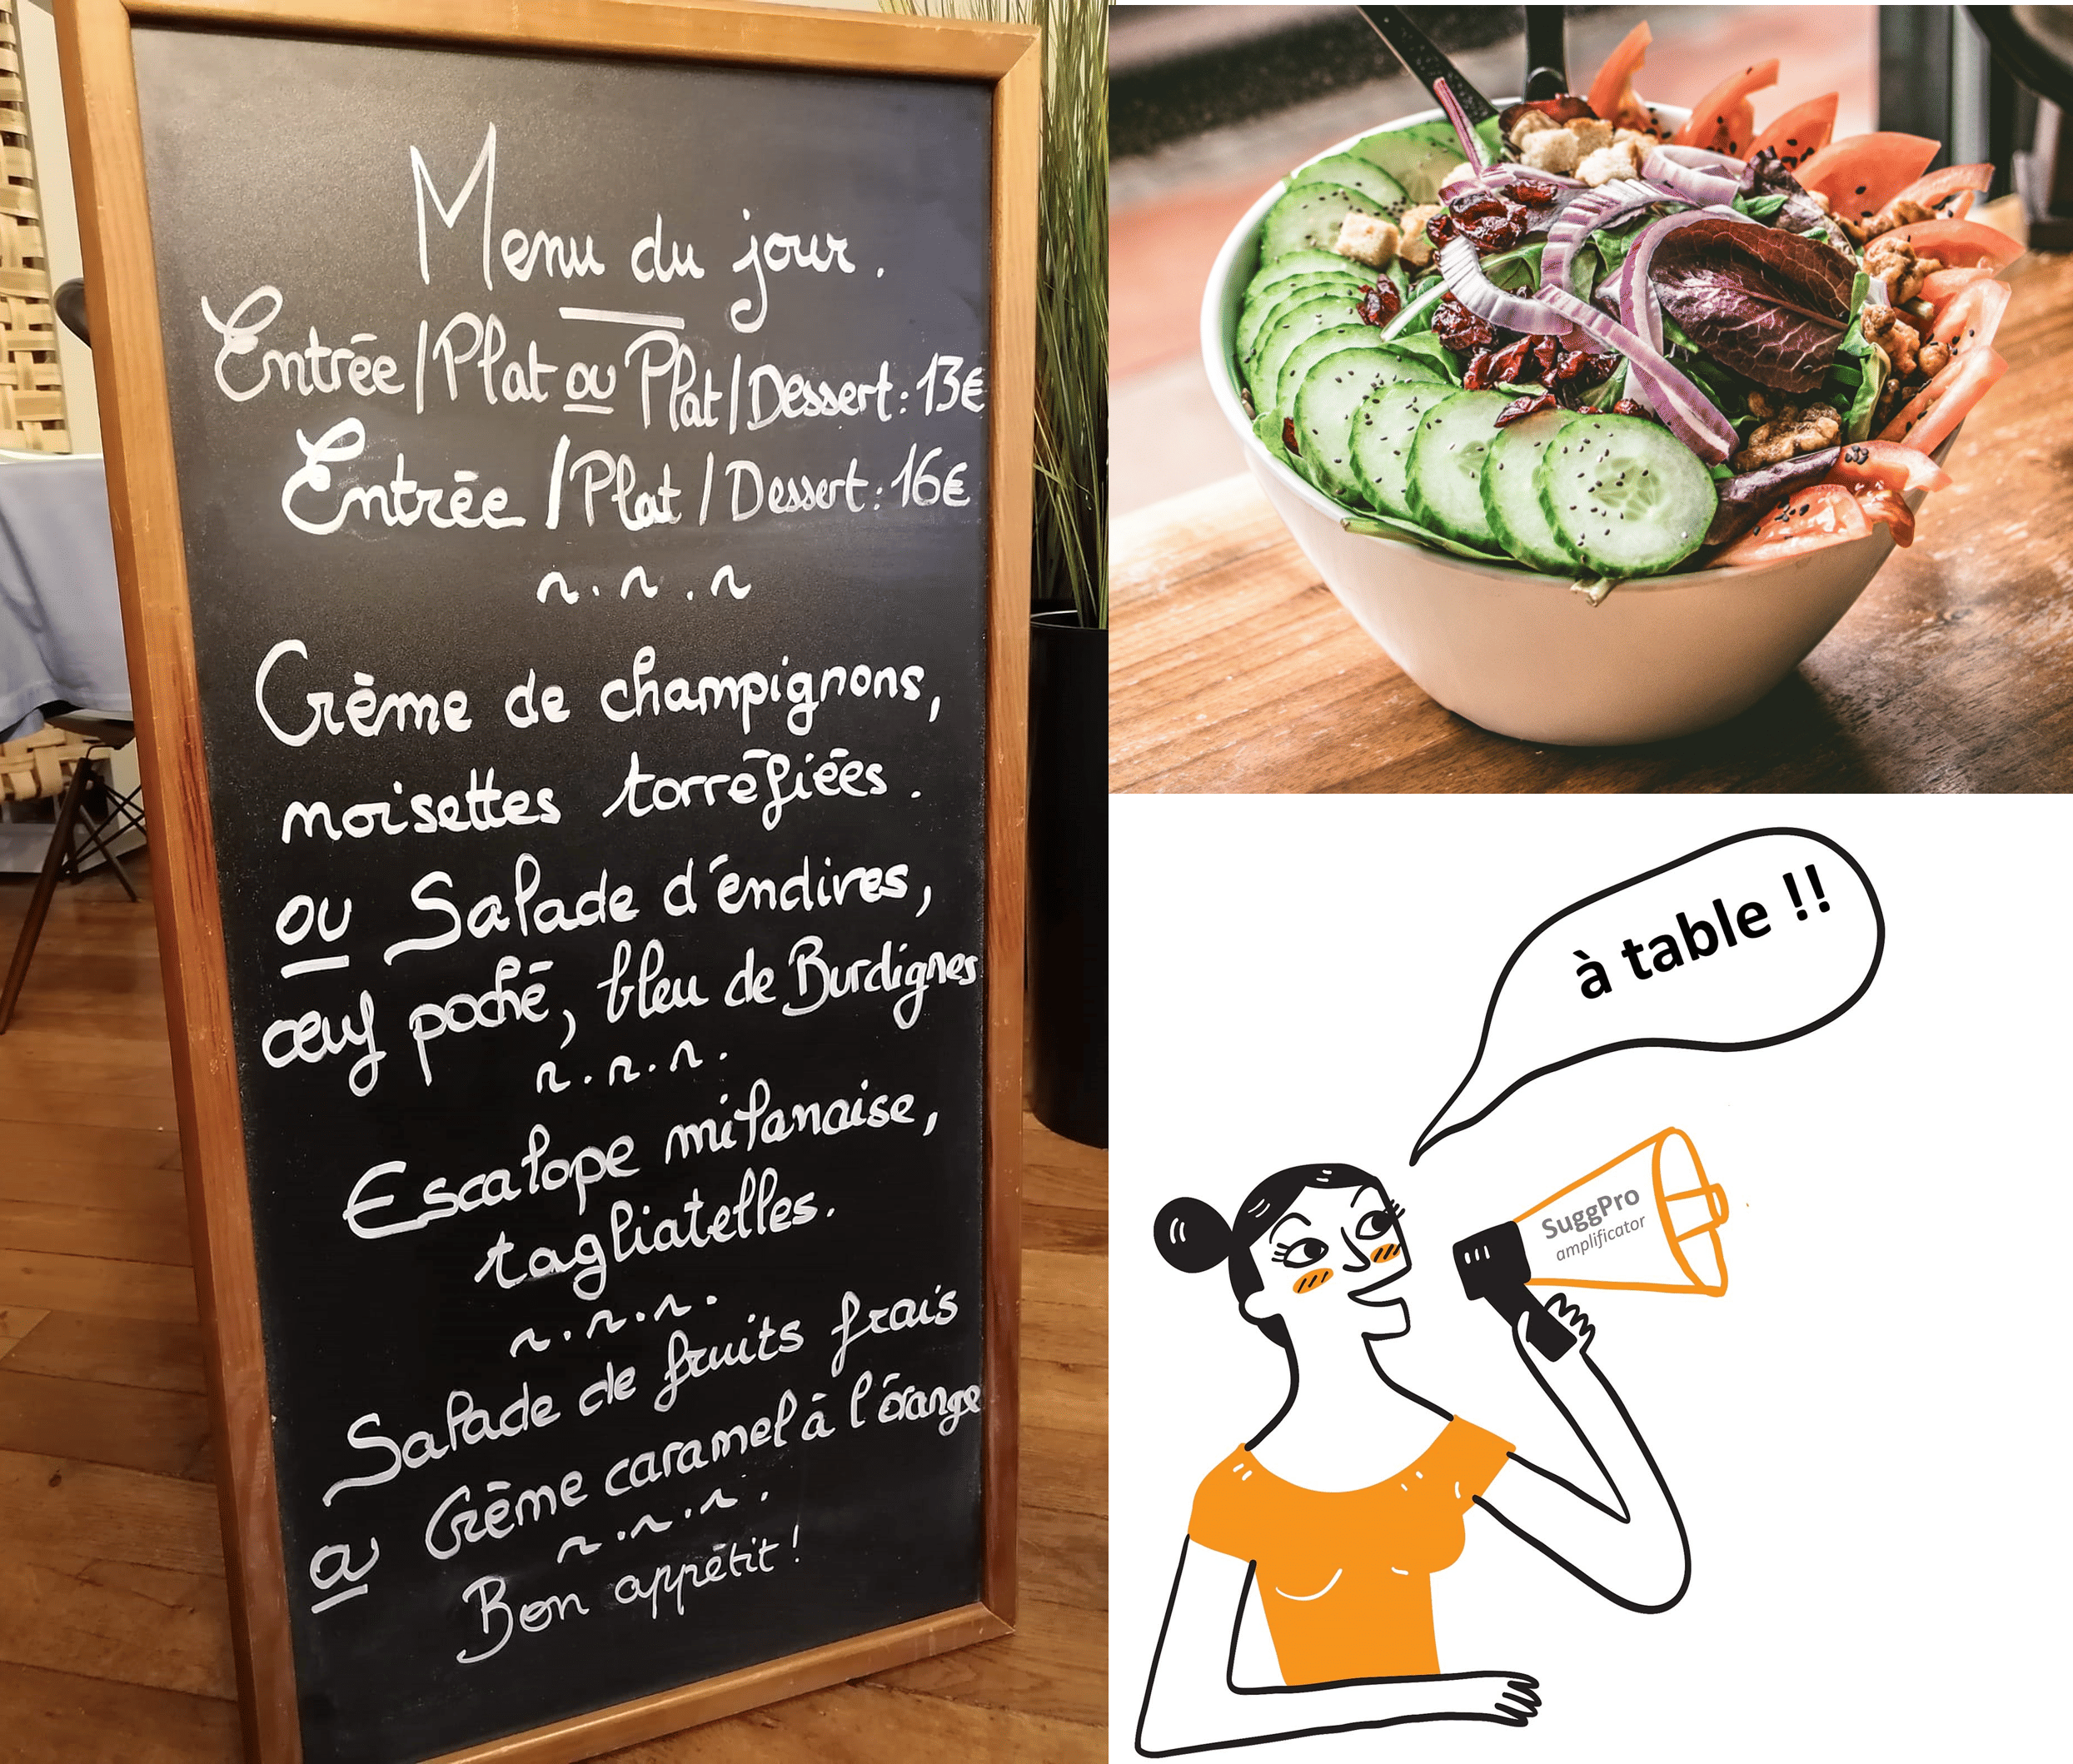 Menu du jour.
Entrée/Plat ou Plat/Dessert: 13€
Entrée/Plat/Dessert: 16€
Crème de champignons,
noisettes torréfiées.
ou Salade d'endives,
œuf poché, bleu de Burdignes
Escalope milanaise,
tagliatelles.
Salade de fruits frais
ou Crème caramel à l'orange
Bon appétit!
à table !!
SuggPro
amplificator